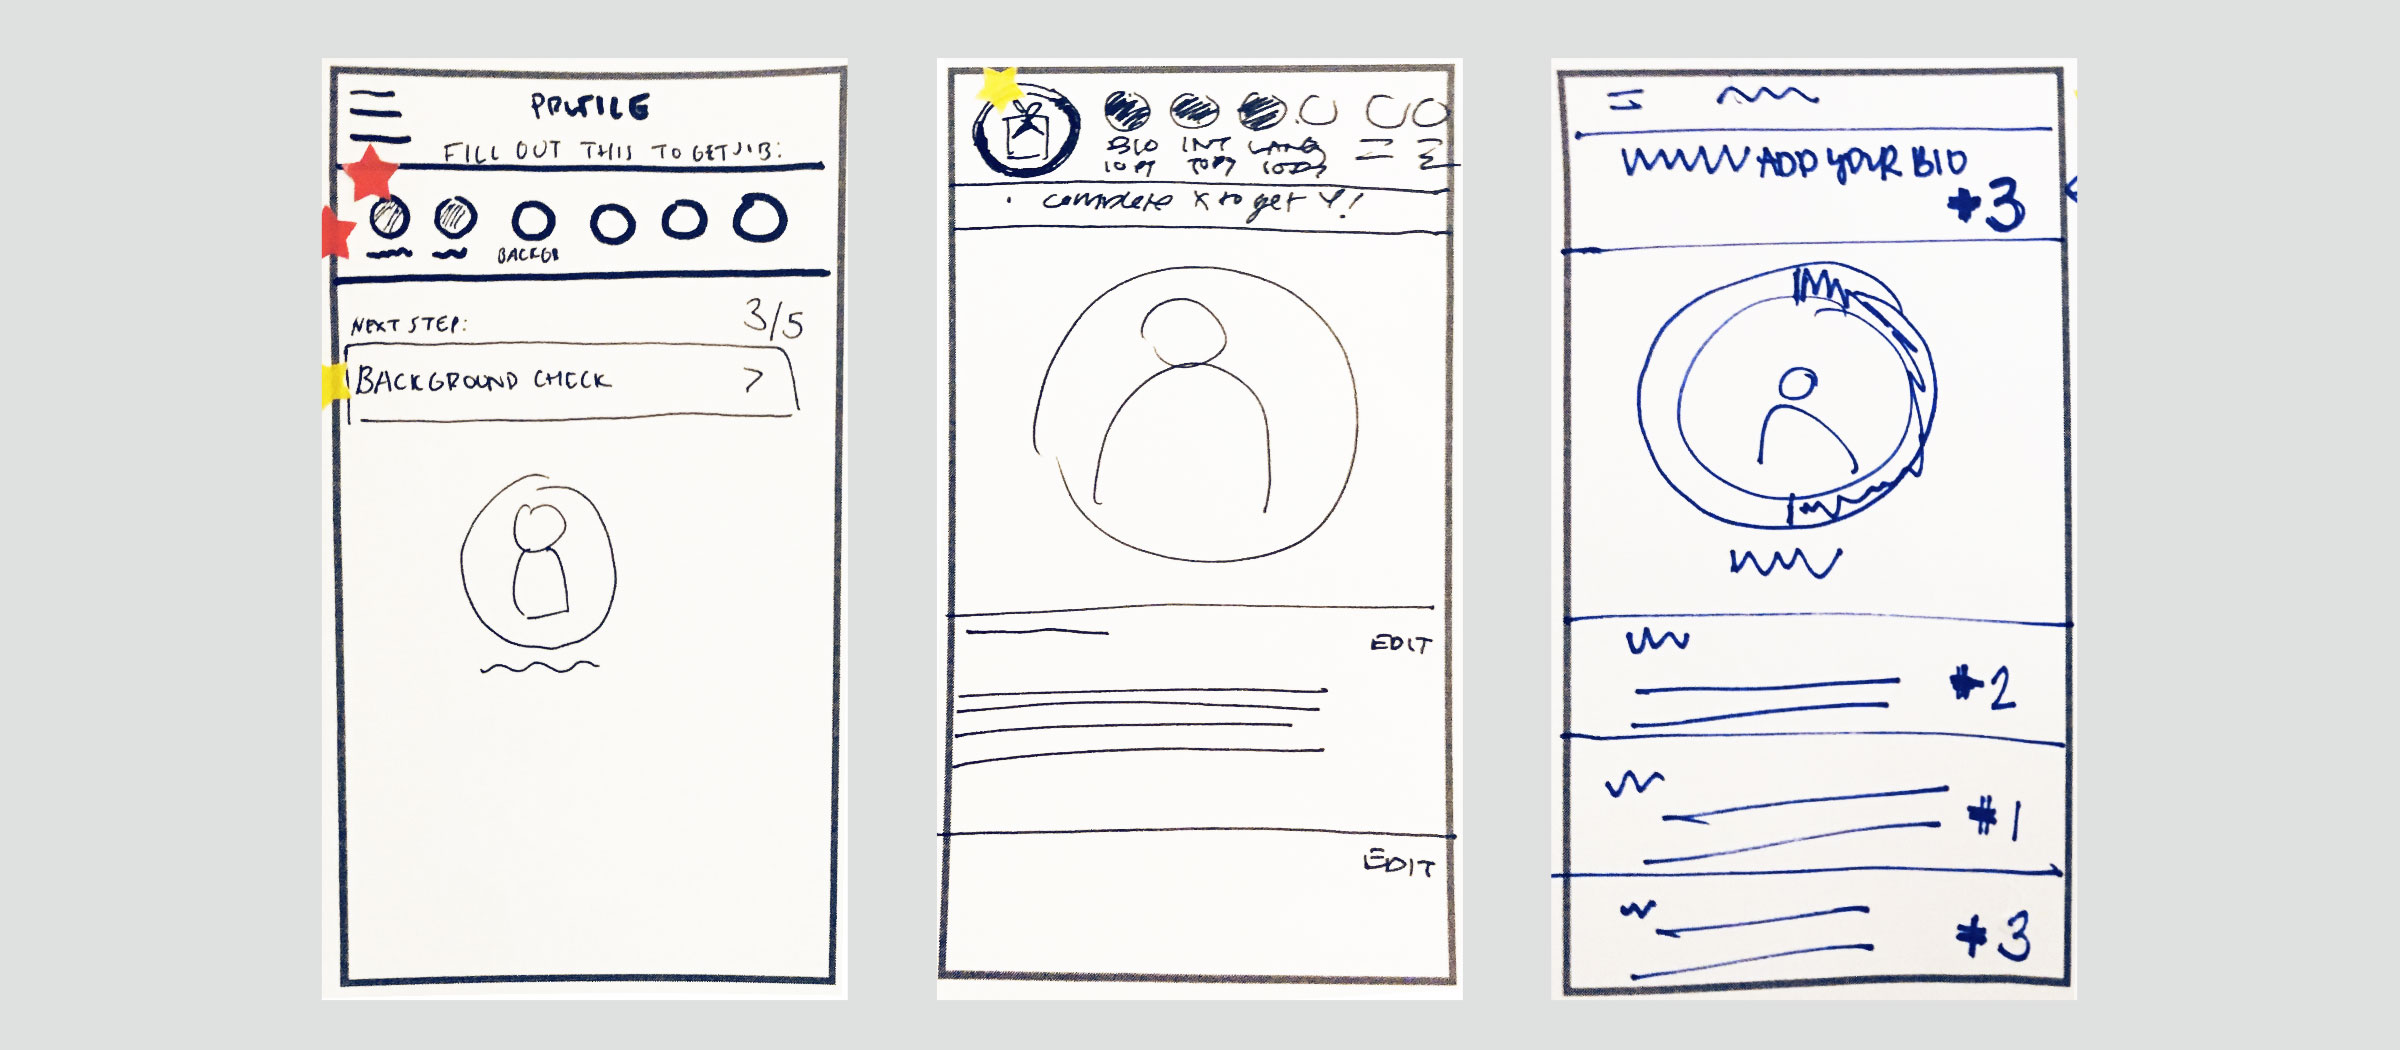 PROFILE
FILL OUT THIS TO GET JOB:
BACKGR
NEXT STEP:
3/5
BACKGROUND CHECK >
BIO INT LANG
10 PT
complete X to get Y!
EDIT
EDIT
ADD YOUR BIO
+3
#2
#1
+3